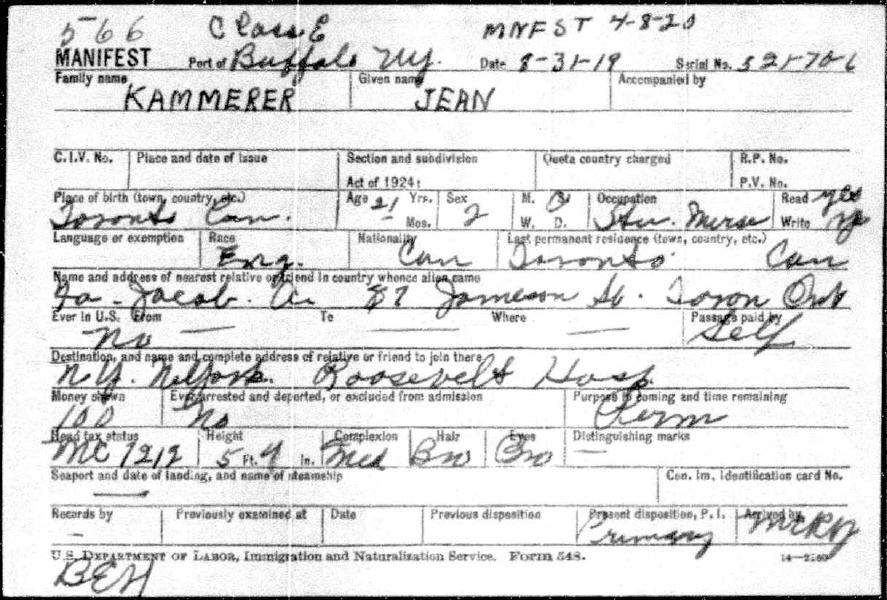 566 Class E MNFST 4-8-20
MANIFEST Port of Buffalo NY. Date 8-31-19 Serial No. 521-70-6
Family name Given name Accompanied by
KAMMERER JEAN
C.I.V. No. Place and date of issue Section and subdivision Quota country charged R.P. No.
Act of 1924: P.V. No.
Place of birth (town, country, etc.) Age 21 Yrs. Sex M. S Occupation Read yes
Toronto Can. Mos. 2 W. D. Stu. Nurse Write
Language or exemption Race Nationality Last permanent residence (town, country, etc.)
Eng. Can Toronto Can
Name and address of nearest relative or friend in country whence alien came
Fa - Jacob. 87 Jameson Toron Ont
Ever in U.S. From To Where Passage paid by
No — — — Self
Destination, and name and complete address of relative or friend to join there
N.Y. Roosevelt Hosp.
Money shown Ever arrested and deported, or excluded from admission Purpose in coming and time remaining
100 No Perm
Head tax status Height Complexion Hair Eyes Distinguishing marks
MC 7212 5 Ft. 4 In. Med Bro Bro —
Seaport and date of landing, and name of steamship Con. Im. Identification card No.
—
Records by Previously examined at Date Previous disposition Present disposition, P. I. Arrived by
- Primary MCRY
U.S. DEPARTMENT OF LABOR, Immigration and Naturalization Service. FORM 548.
BEH